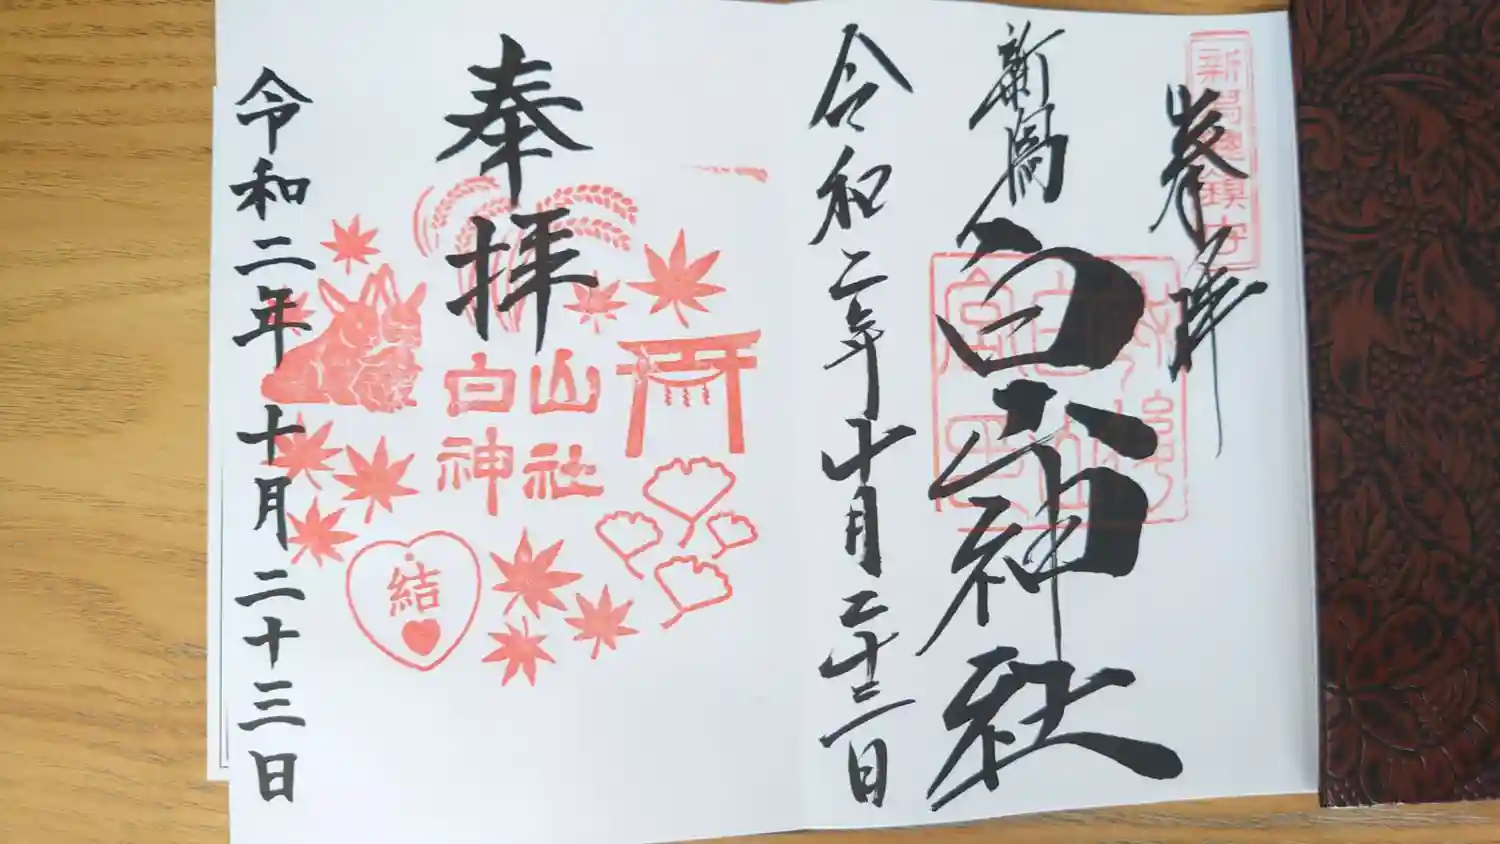 新潟總鎮守
奉拝
新潟
白山神社
令和二年十月二十三日
奉拝
白山
神社
結
令和二年十月二十三日